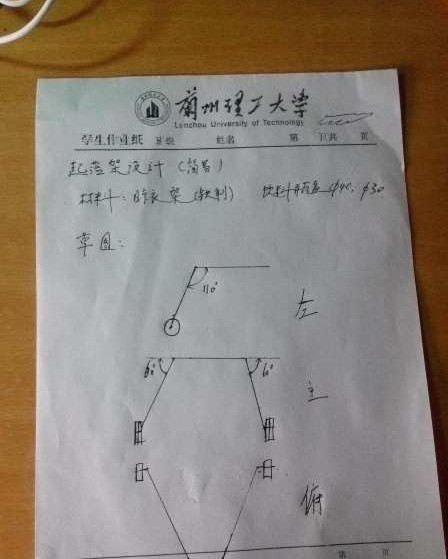 兰州理工大学
Lanzhou University of Technology
学生作业纸 班级 姓名 第 页共 页
起落架设计(简易)
材料:晾衣架(铁制) 饮料瓶盖 φ40、φ30
草图:
110°
左
60° 60°
主
俯
第 页